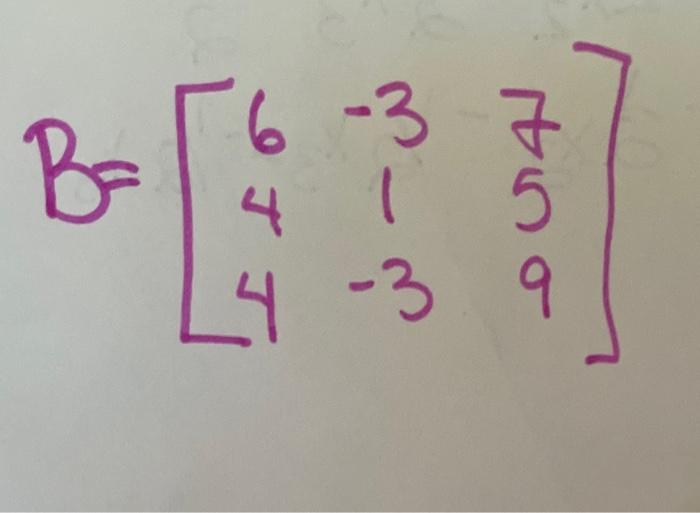 B= [ 6 -3 7
4 1 5
4 -3 9 ]